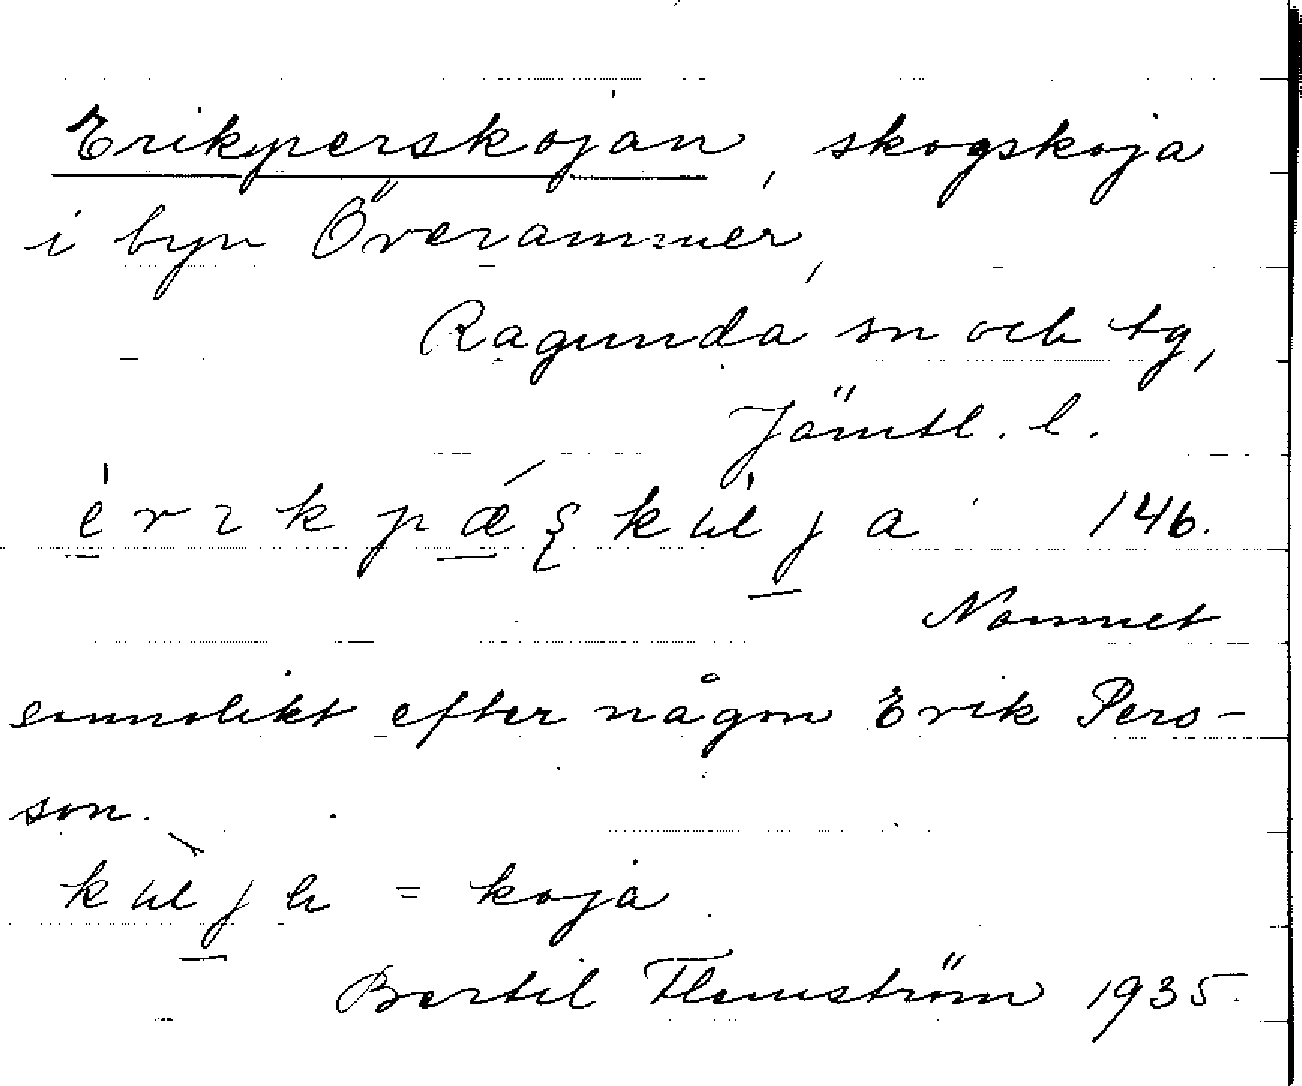 Erikperskojan, skogskoja
i byn Överammer,
Ragunda sn och tg,
Jämtl. l.
146.
Namnet
sannolikt efter någon Erik Pers-
son.
= koja
Bertil Flemström 1935.